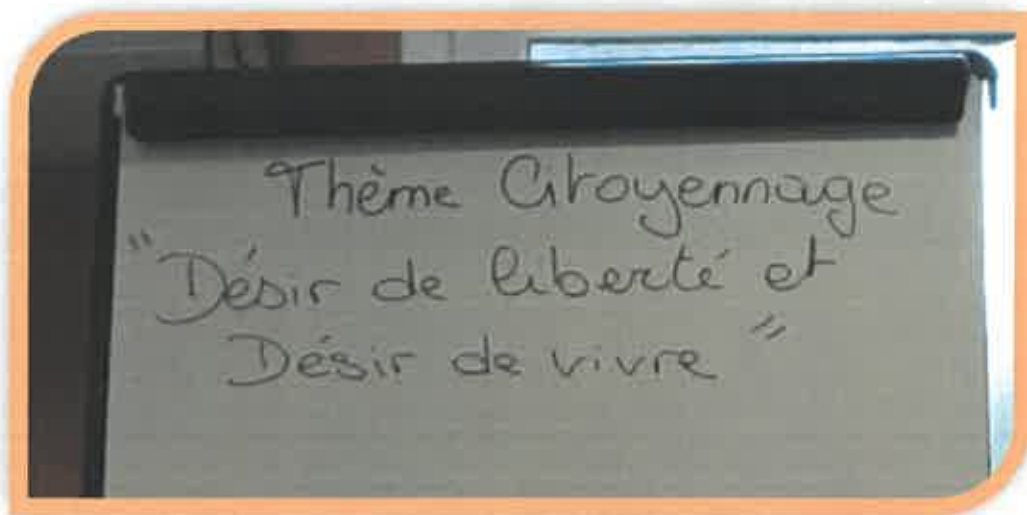 Thème Citoyennage
"Désir de liberté et
Désir de vivre"